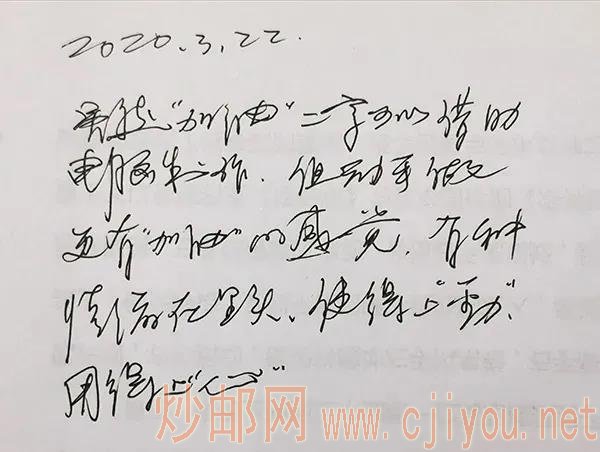 2020.3.22.
虽然“加油”二字可以借助
电脑制作，但动手做又
更有“加油”的感觉，有种
情溶在里头、使得上“劲”、
用得上“心”
炒邮网 www.cjiyou.net